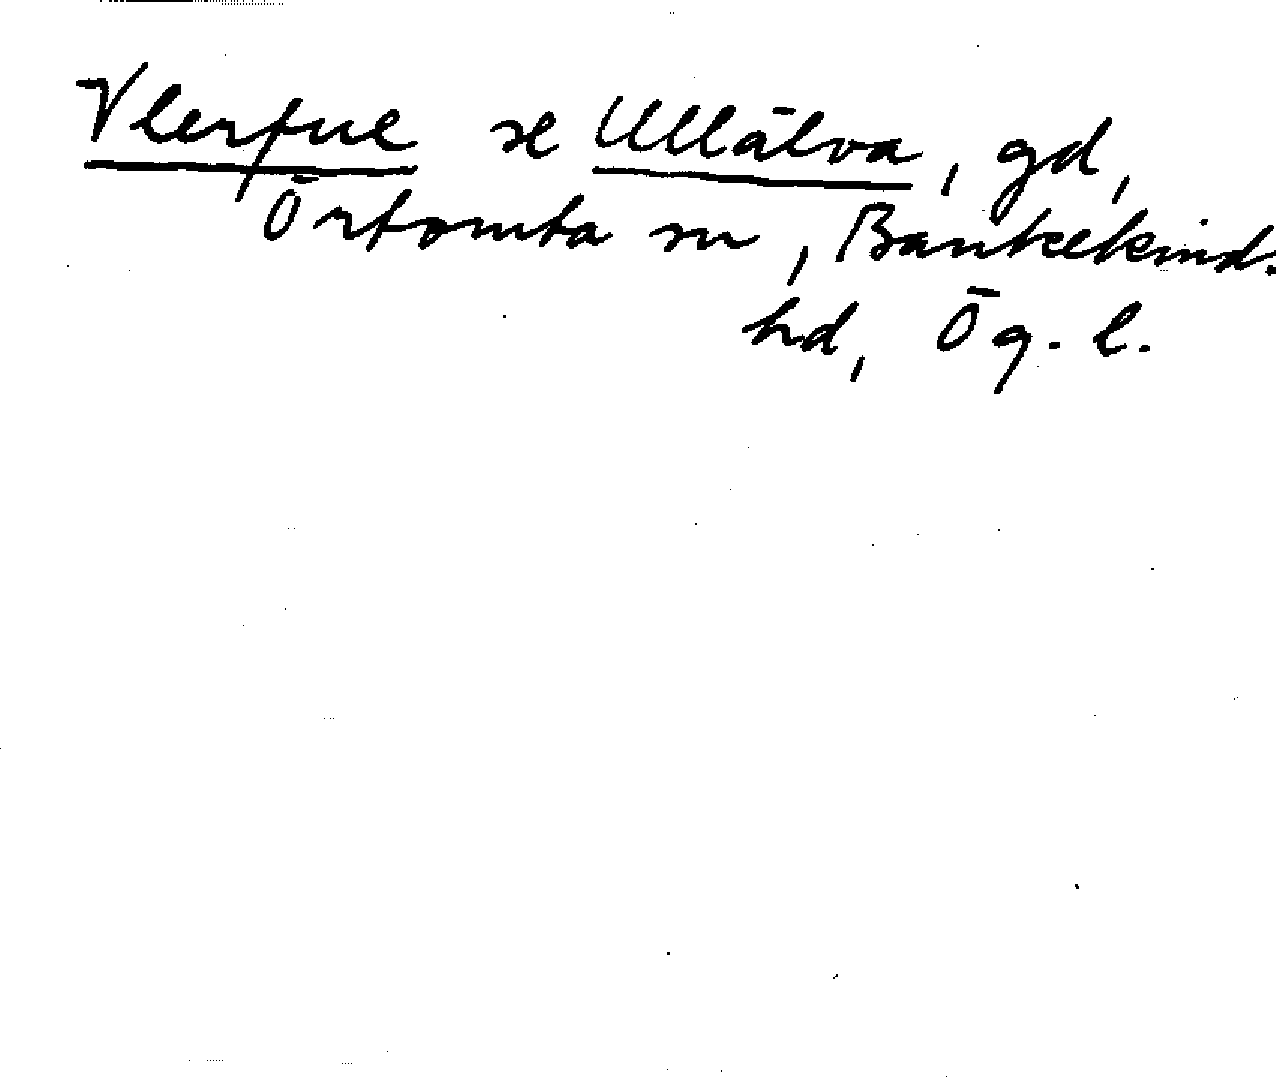 Vlerfue se Ullälva, gd,
Örtomta sn, Bankekind.
hd, Ög. l.